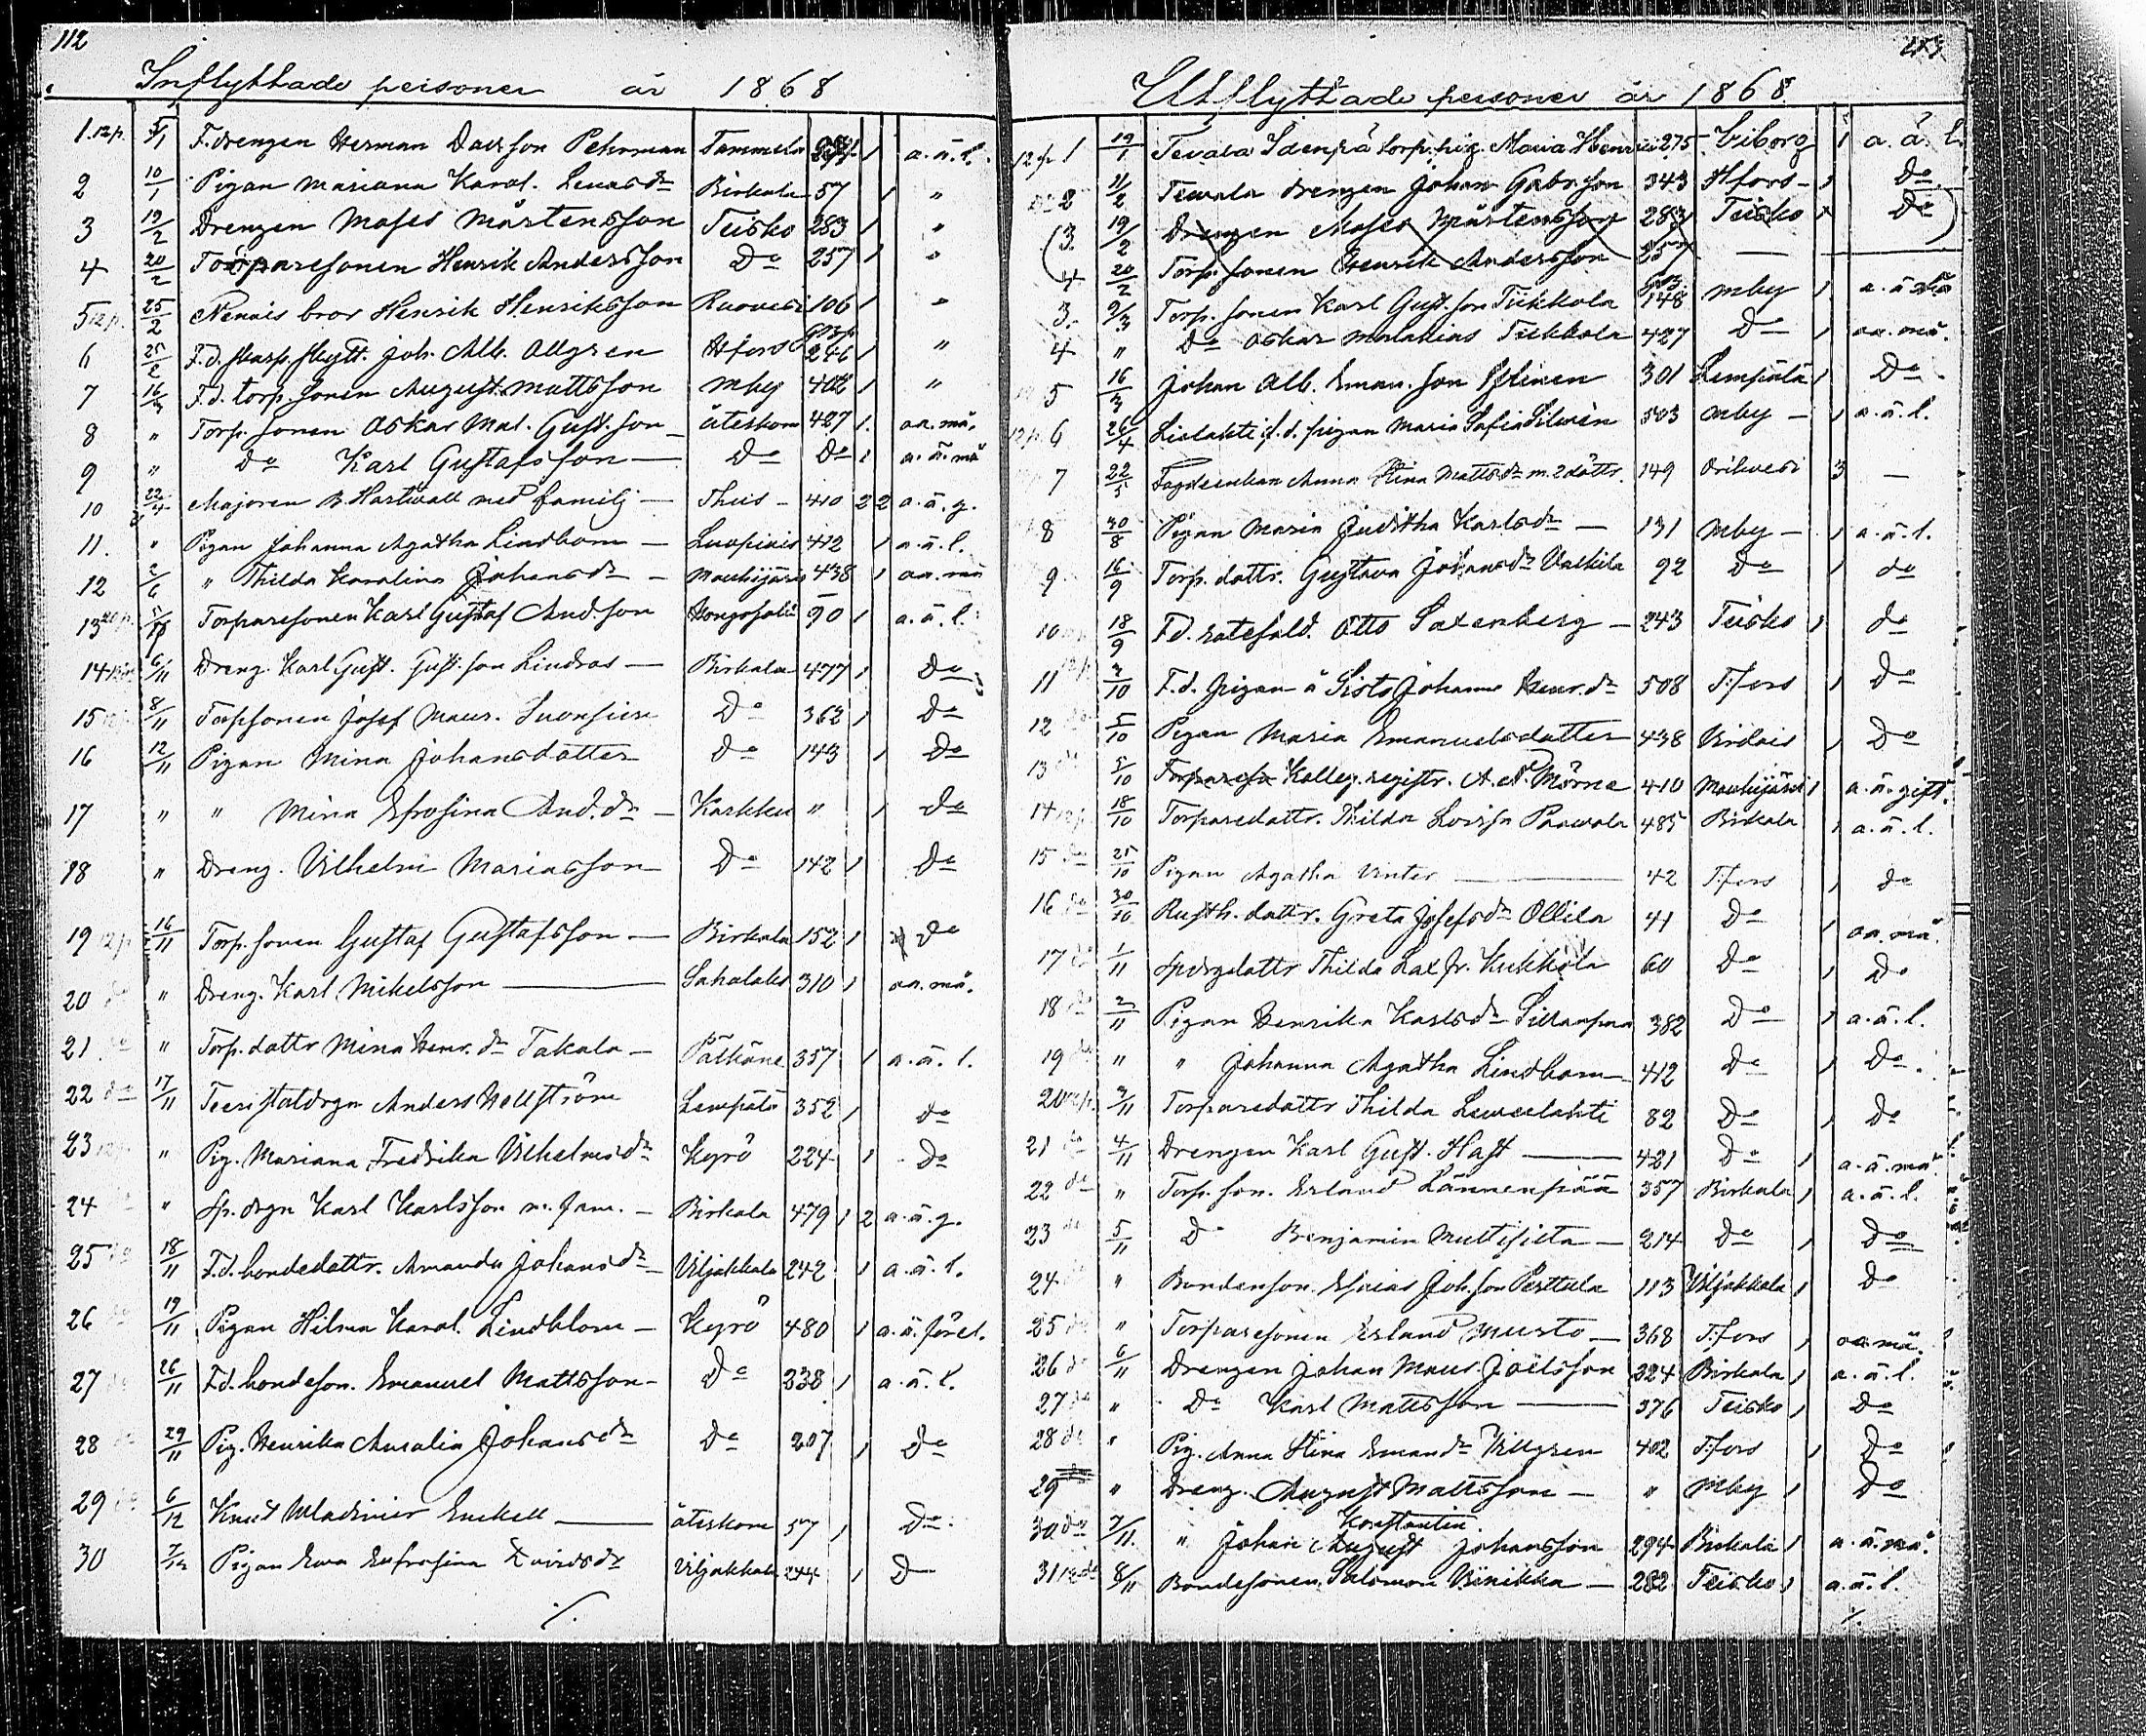 112
Inflyttade personer år 1868
1. 12p. 5/1 F.drengen Herman Davsson Pehrman Tammela 1 a.ä.l.
2 10/1 Pigan Mariana Karol. Lenasdr Birkala 57 1 "
3 19/2 Drengen Moses Mårtensson Teisko 283 1 "
4 20/2 Torparesonen Henrik Andersson Do 257 1 "
5 12p. 25/2 Henriks bror Henrik Henriksson Ruovesi 106 1 "
6 25/2 F.d. skarpskytt. Joh. Alb. Allgren Hfors 246 1 "
7 16/3 F.d. torp.sonen August Mattsson Mby 402 1 "
8 " Torp.sonen Oskar Mal. Gust.son återkom 427 1. aa.må.
9 " Do Karl Gustafsson — Do Do 1 a.ä.må
10 22/4 Majoren B. Hartwall med familj — Thus - 410 2 2 a.ä.g.
11. " Pigan Johanna Agatha Lindbom — 412 1 a.ä.l.
12 2/6 " Thilda Karolina Johansdr - Mouhijärvi 438 1 aa.må
13 Torparesonen Karl Gustaf And.son 90 1 a.ä.l.
14 12p. 6/11 Dreng. Karl Gust. Gust.son Lindros — Birkala 477 1 Do
15 12p. 8/11 Torpsonen Josef Maur. Suonsien Do 362 1 Do
16 12/11 Pigan Mina Johansdotter Do 143 1 Do
17 " " Mina Efrosina And.dr — Karkku " 1 Do
18 " Dreng. Vilhelm Mariasson Do 142 1 Do
19 12p 16/11 Torp.sonen Gustaf Gustafsson — Birkala 152 1 Do
20 do " Dreng. Karl Mikelsson — Sahalaks 310 1 aa.må.
21 do " Torp.dottr Mina Henr.dr Takala — Pälkäne 357 1 a.ä.l.
22 do 17/11 Anders Hellström Lempälä 352 1 do
23 12p. " Pig. Mariana Fredrika Vilhelmsdr Kyrö 224 1 Do
24 " Sp.drgn Karl Karlsson m. fam. — Birkala 479 1 2 a.ä.g.
25 do 18/11 F.d. bondedottr. Amanda Johansdr Viljakkala 242 1 a.ä.l.
26 do 19/11 Pigan Hilma Karol. Lindblom — Kyrö 480 1 a.ä.förel.
27 26/11 F.d. bondeson. Emanuel Mattsson - Do 238 1 a.ä.l.
28 29/11 Pig. Henrika Amalia Johansdr Do 207 1 Do
29 6/12 Knut Wladimir Enckell — återkom 57 1 Do
30 7/12 Pigan Eva Eufrosina Viljakkala 244 1 D
./.
113
Utflyttade personer år 1868
12p 1 19/1 Tevala torp. pig. Maria Henr 275 Viborg 1 a.ä.l.
do 2 11/2 Tewala drengen Johan Gabr.son 343 Hfors - 1 Do
(3. 19/2 Drengen Moses Mårtensson 283 Teisko 1 Do )
4 20/2 Torp.sonen Henrik Andersson 257 —
3. 9/3 Torp.sonen Karl Gust.son Tiikkola 148 Mby 1
4 " Do Oskar Malakias Tiikkola 427 Do 1 aa.må.
5 16/3 Johan Alb. Eman.son 301 Lempälä 1 Do
12p 6 26/4 Lielahti f.d. pigan Maria Sofia Silvén 503 Mby — 1 a.ä.l.
7 22/5 Anna Stina Mattsdr m. 2 döttr. 149 Orihvesi 3 —
8 30/8 Pigan Maria Juditha Karlsdr — 131 Mby — 1 a.ä.l.
9 16/9 Torp.dottr. Gustava Johansdr 92 Do 1 do
10 18/9 F.d. rotesold. Otto Saxenberg — 243 Teisko 1 do
11 12p 3/10 F.d. pigan å Sisto Johanna Henr.dr 508 T:fors 1 Do
12 5/10 Pigan Maria Emanuelsdotter 438 Virdois 1 Do
13 5/10 Kolleg.registr. A. N. Mörne 410 Mouhijärvi 1 a.ä.gift.
14 12p. 18/10 Torparedottr. Thilda Lovisa Paavola 485 Birkala 1 a.ä.l.
15 do 25/10 Pigan Agatha Vinter — 42 T:fors 1 do
16 do 30/10 Rusth.dottr. Greta Josefsdr Ollila 41 Do 1 aa.må.
17 do 1/11 Thilda Kukkola 60 Do 1 Do
18 do 2/11 Pigan Henrika Karlsdr Sillanpää 382 Do 1 a.ä.l.
19 do " " Johanna Agatha Lindbom — 412 Do 1 Do.
20 12p. 3/11 Torparedottr Thilda 82 Do 1 Do
21 do 4/11 Drengen Karl Gust. Haft — 421 Do 1 a.ä.må
22 do " Torp.son. Erland Lännenpää 357 Birkala 1 a.ä.l.
23 do 5/11 D Benjamin — 214 Do 1 Do
24 " Bondeson. Esaias Joh.son Perttula 113 Viljakkala 1 Do
25 do " Torparesonen Erland Musto — 368 T:fors 1 aa.må.
26 do 6/11 Drengen Johan Maur. Joelsson 324 Birkala 1 a.ä.l.
27 do " Do Karl Mattsson — 376 Teisko 1 Do
28 do " Pig. Anna Stina Emandr Villgren 402 T:fors 1 Do
29 " Dreng. August Mattsson — " Mby 1 Do
Konstantin.
30 do 7/11. " Johan August Johansson 294 Birkala 1 a.ä.må.
31 12p 8/11 Bondesonen Salomon — 282 Teisko 1 a.ä.l.
./.